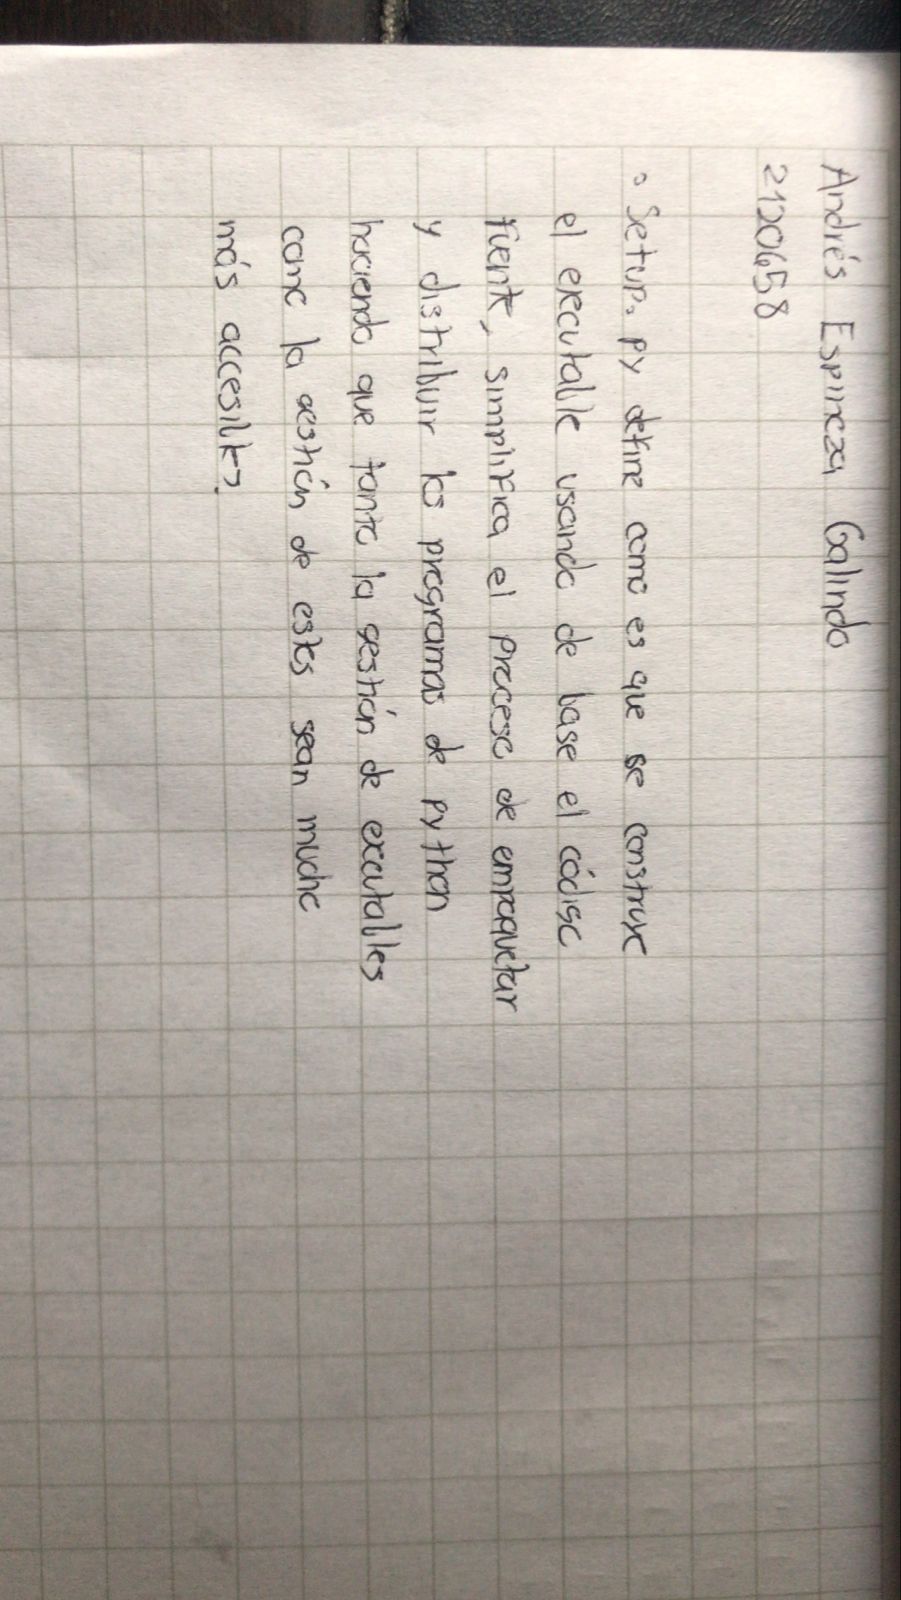 Andrés Espinoza Galindo
2120658
° Setup.py define como es que se construye
el executable usando de base el código
fuente, simplifica el proceso de empaquetar
y distribuir los programas de python
haciendo que tanto la gestión de executables
como la gestión de estos sean mucho
más accesibles.